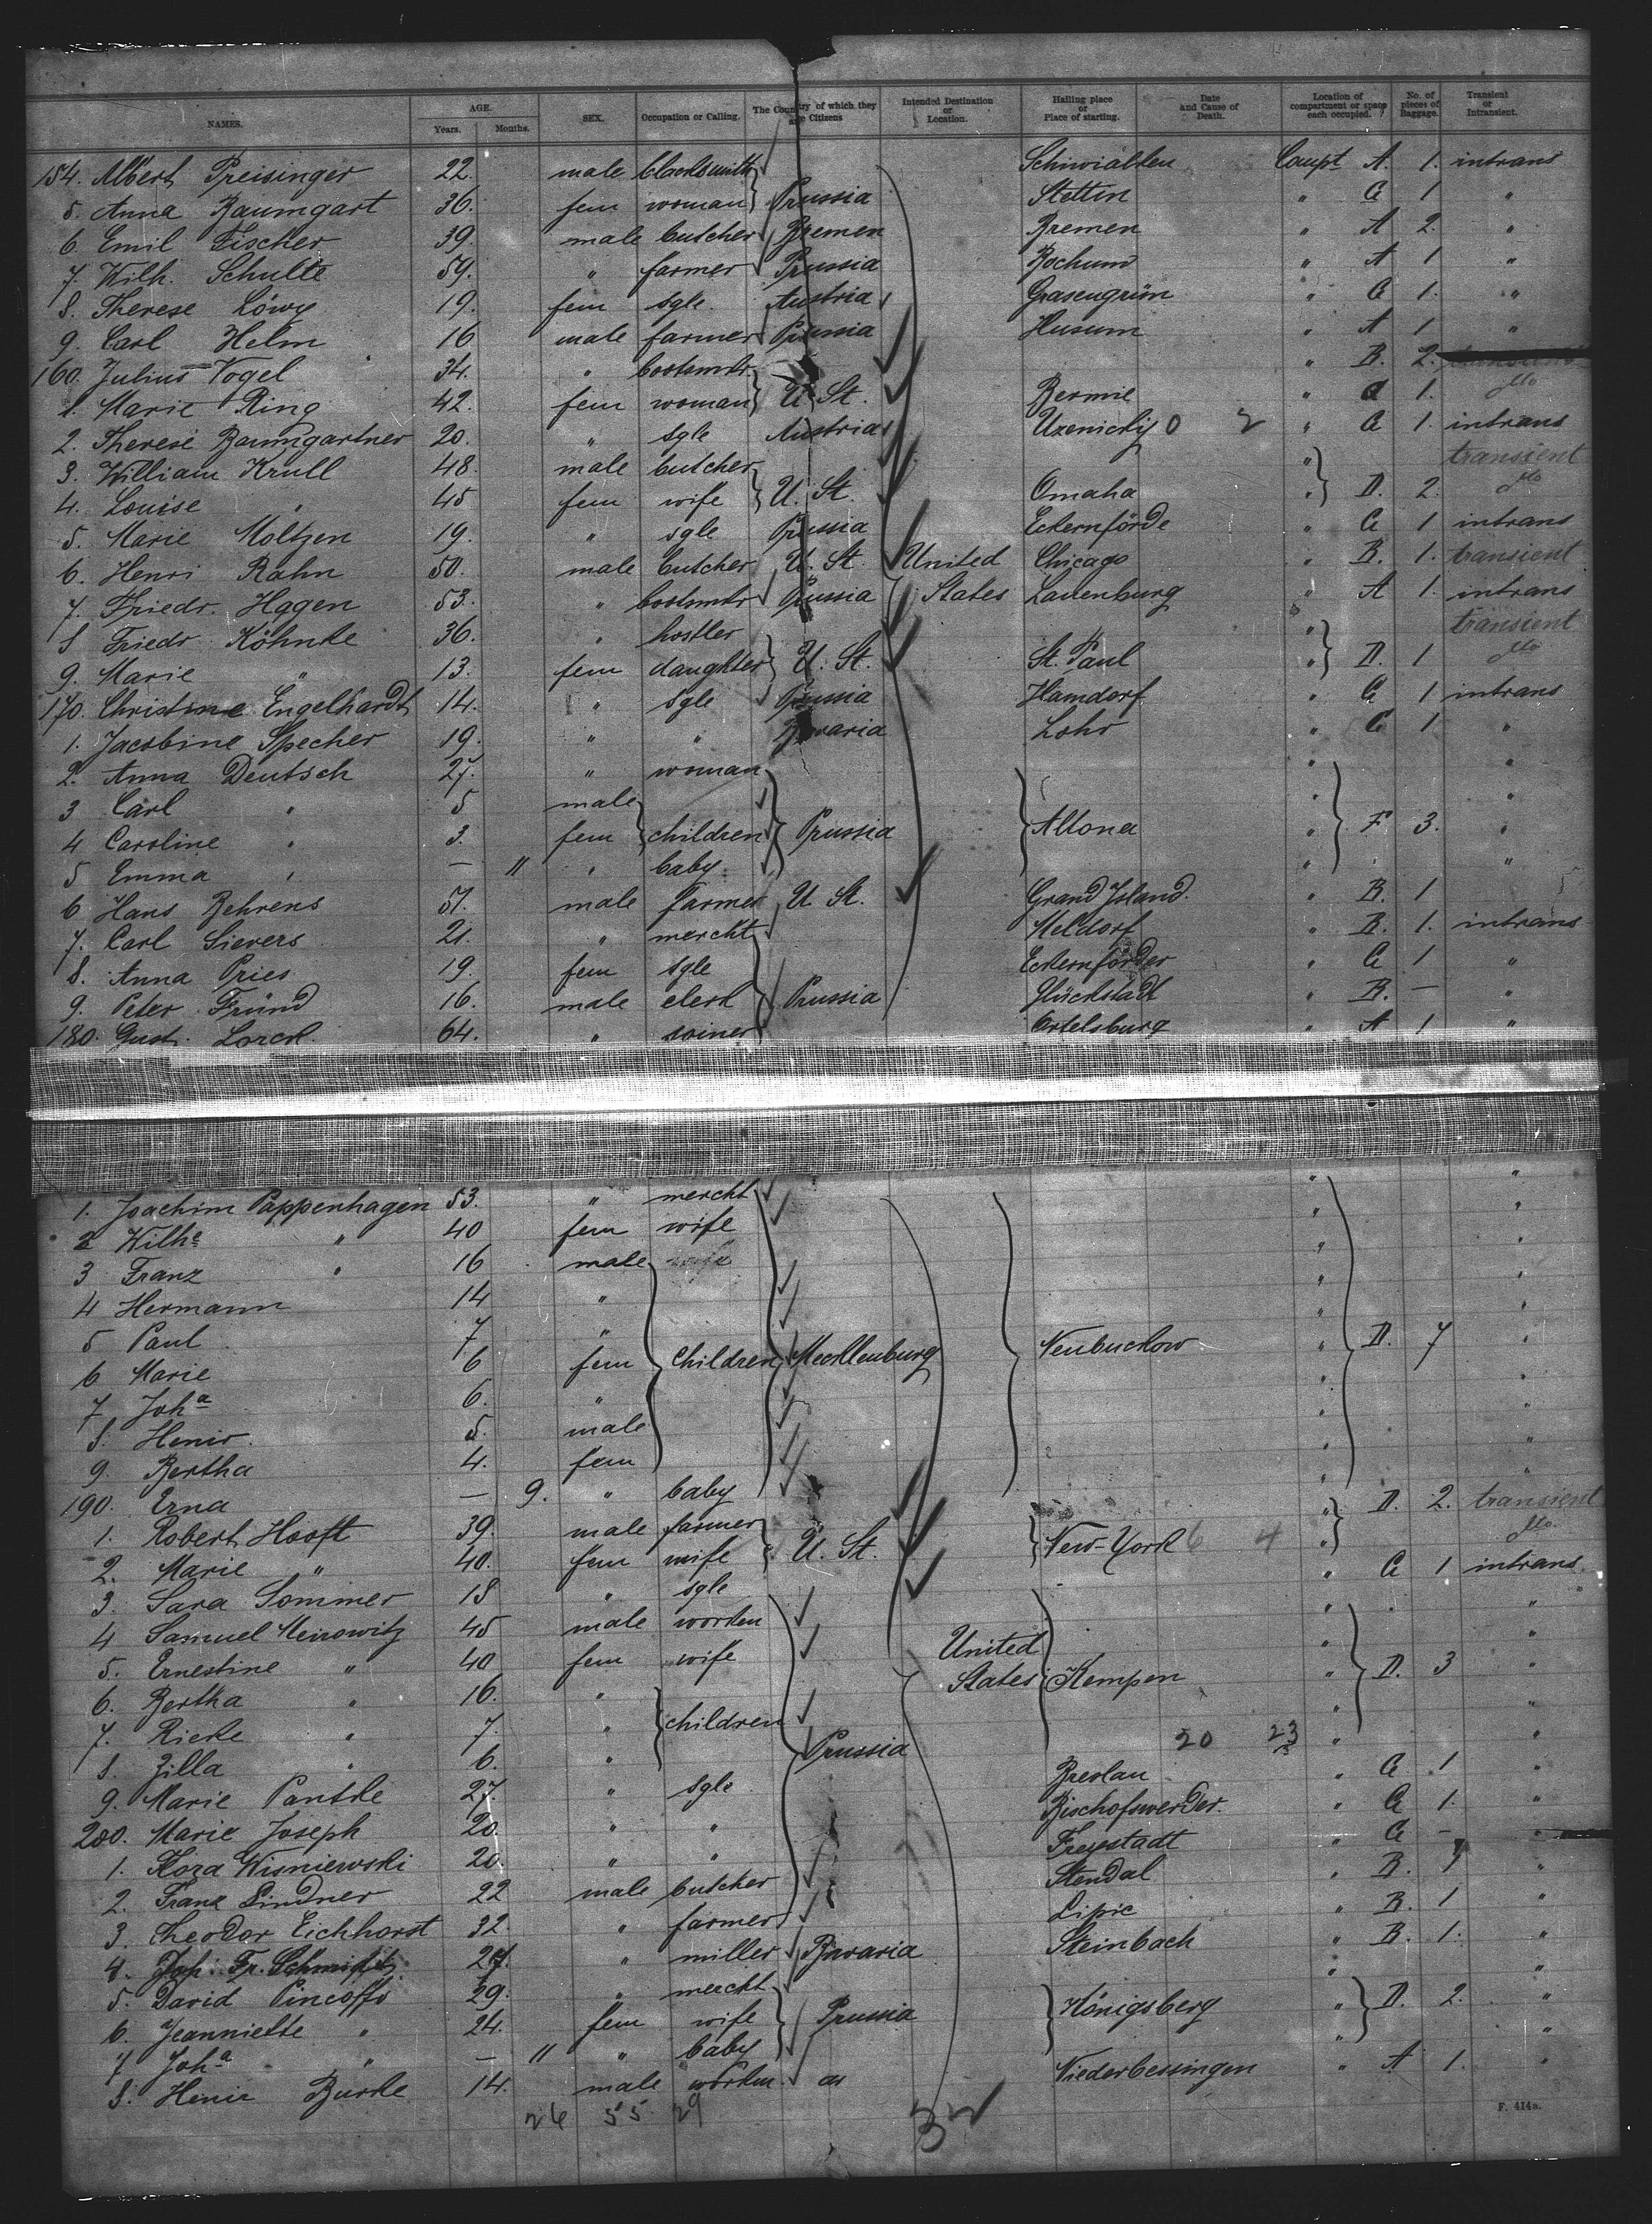 NAMES. AGE. Years. Months. SEX. Occupation or Calling. The Country of which they are Citizens Intended Destination or Location. Hailing place or Place of starting. Date and Cause of Death. Location of compartment or space each occupied. No. of pieces of Baggage. Transient or Intransient.
154. Albert Preisinger 22. male blacksmith Compt A. 1. intrans
5. Anna Baumgart 36. fem woman Prussia Stettin " C 1 "
6. Emil Fischer 39. male butcher Bremen Bremen " A 2. "
7. Wilh. Schulte 59. " farmer Prussia Bochum " A 1 "
8. Therese Löwy 19. fem sgle. Austria Grasengrün " C 1. "
9. Carl Helm 16 male farmer Prussia Husum " A 1 "
160. Julius Vogel 34. " bootsmkr. " B. 2.
1. Marie Ring 42. fem woman U. St. " C 1. do
2. Therese Baumgartner 20. " sgle Austria 0 2 " C 1. intrans
3. William Krull 48. male butcher " transient
4. Louise " 45 fem wife U. St. Omaha " D. 2. do
5. Marie Moltzen 19. " sgle Prussia Eckernförde " C 1 intrans
6. Henri Rahn 50. male butcher U. St. United Chicago " B. 1. transient
7. Friedr. Hagen 53. " bootsmkr Prussia States Lauenburg " A 1. intrans
8 Friedr. Köhnke 36. " hostler " transient
9. Marie " 13. fem daughter U. St. St. Paul " D. 1 do
170. Christine Engelhardt 14. " sgle Prussia Hamdorf " C 1 intrans
1. Jacobine Specher 19. " " Bavaria Lohr " C 1 "
2. Anna Deutsch 27. " woman " "
3 Carl " 5 male " "
4 Caroline " 3. fem children Prussia Altona " F 3. "
5 Emma " — 11 " baby " "
6 Hans Behrens 51. male farmer U St. Grand Island. " B. 1
7. Carl Sievers 21. " mercht Meldorf " B. 1. intrans
8. Anna Pries 19. fem sgle Eckernförder " C 1 "
9. Peter Fründ 16. male clerk Prussia Glückstadt " B. — "
180. Gust. Lorck. 64. " Ortelsburg " A 1. "
1. Joachim Pappenhagen 53. " mercht " "
2 Wilhe " 40 fem wife " "
3 Franz " 16 male " "
4 Hermann 14 " " "
5 Paul 7 " " "
6 Marie 6 fem children Mecklenburg Neubuckow " D. 7 "
7 Joha 6. " " "
8. Henir. 5. male " "
9. Bertha 4. fem " "
190. Erna — 9. " baby " "
1. Robert Hooft 39. male farmer " D. 2. transient
2. Marie " 40. fem wife U. St. New-York 6 4 " do.
3. Sara Sommer 18 " sgle " C 1 intrans.
4 Samuel Meirowitz 45 male worken " "
5. Ernestine " 40 fem wife United " "
6. Bertha " 16. " States Kempen " D. 3 "
7. Rieke " 7. " children " "
8. Zilla " 6. " Prussia 20 23 " "
9. Marie Pantke 27. " sgle Breslau " C 1 "
200. Marie Joseph 20. " " Bischofswerder. " C 1. "
1. Flora Wisniewski 20. " " Freystadt " C — "
2. Franz Lindner 22 male butcher Stendal " B. 1 "
3. Theodor Eichhorst 32. " farmer Lipie " B. 1 "
4. Joh. Fr. Schmidt " miller Bavaria Steinbach " B. 1. "
5. David Pincoffs 29. " mercht " "
6. Jeanniette " 24. fem wife Prussia Königsberg " D. 2. "
7 Joha " — 11 " baby " "
8. Henir Burke 14. male worken. Niederbessingen " A 1. "
26 55 29 32
F. 414a.